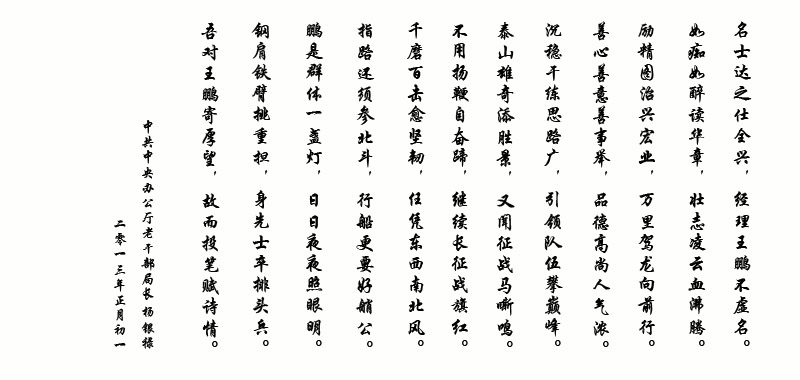 名士达之仕全兴，经理王鹏不虚名。
如痴如醉读华章，壮志凌云血沸腾。
励精图治兴宏业，万里驾龙向前行。
善心善意善事举，品德高尚人气浓。
沉稳干练思路广，引领队伍攀巅峰。
泰山雄奇添胜景，又闻征战马嘶鸣。
不用扬鞭自奋蹄，继续长征战旗红。
千磨百击愈坚韧，任凭东西南北风。
指路还须参北斗，行船更要好艄公。
鹏是群体一盏灯，日日夜夜照眼明。
钢肩铁臂挑重担，身先士卒排头兵。
吾对王鹏寄厚望，故而投笔赋诗情。
中共中央办公厅老干部局长 杨银禄
二零一三年正月初一